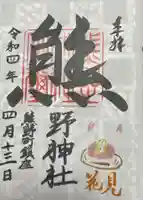 奉拝
熊野神社
熊野町鎮座
令和四年
四月十三日
花見